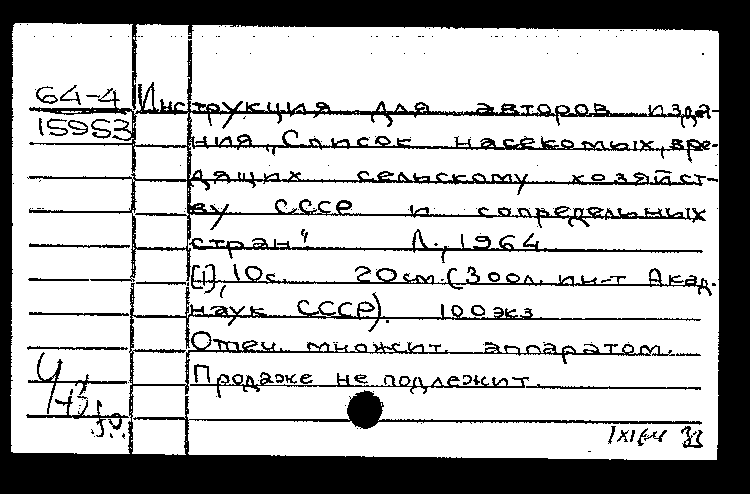 64-4
15953
Инструкция для авторов изда-
ния „Список насекомых, вре-
дящих сельскому хозяйст-
ву СССР и сопредельных
стран" Л., 1964
[1], 10с. 20см. (Зоол. ин-т Акад.
наук СССР). 100 экз
Отпеч. множит. аппаратом.
Продаже не подлежит.
1XI64 33